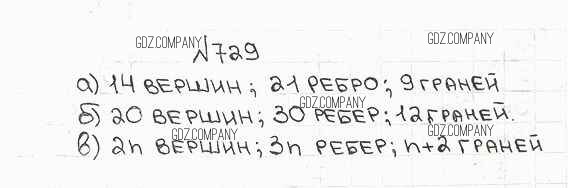 GDZ.COMPANY GDZ.COMPANY
№729
а) 14 ВЕРШИН; 21 РЕБРО; 9 ГРАНЕЙ
GDZ.COMPANY
б) 20 ВЕРШИН; 30 РЕБЕР; 12 ГРАНЕЙ.
GDZ.COMPANY GDZ.COMPANY
в) 2n ВЕРШИН; 3n РЕБЕР; n+2 ГРАНЕЙ